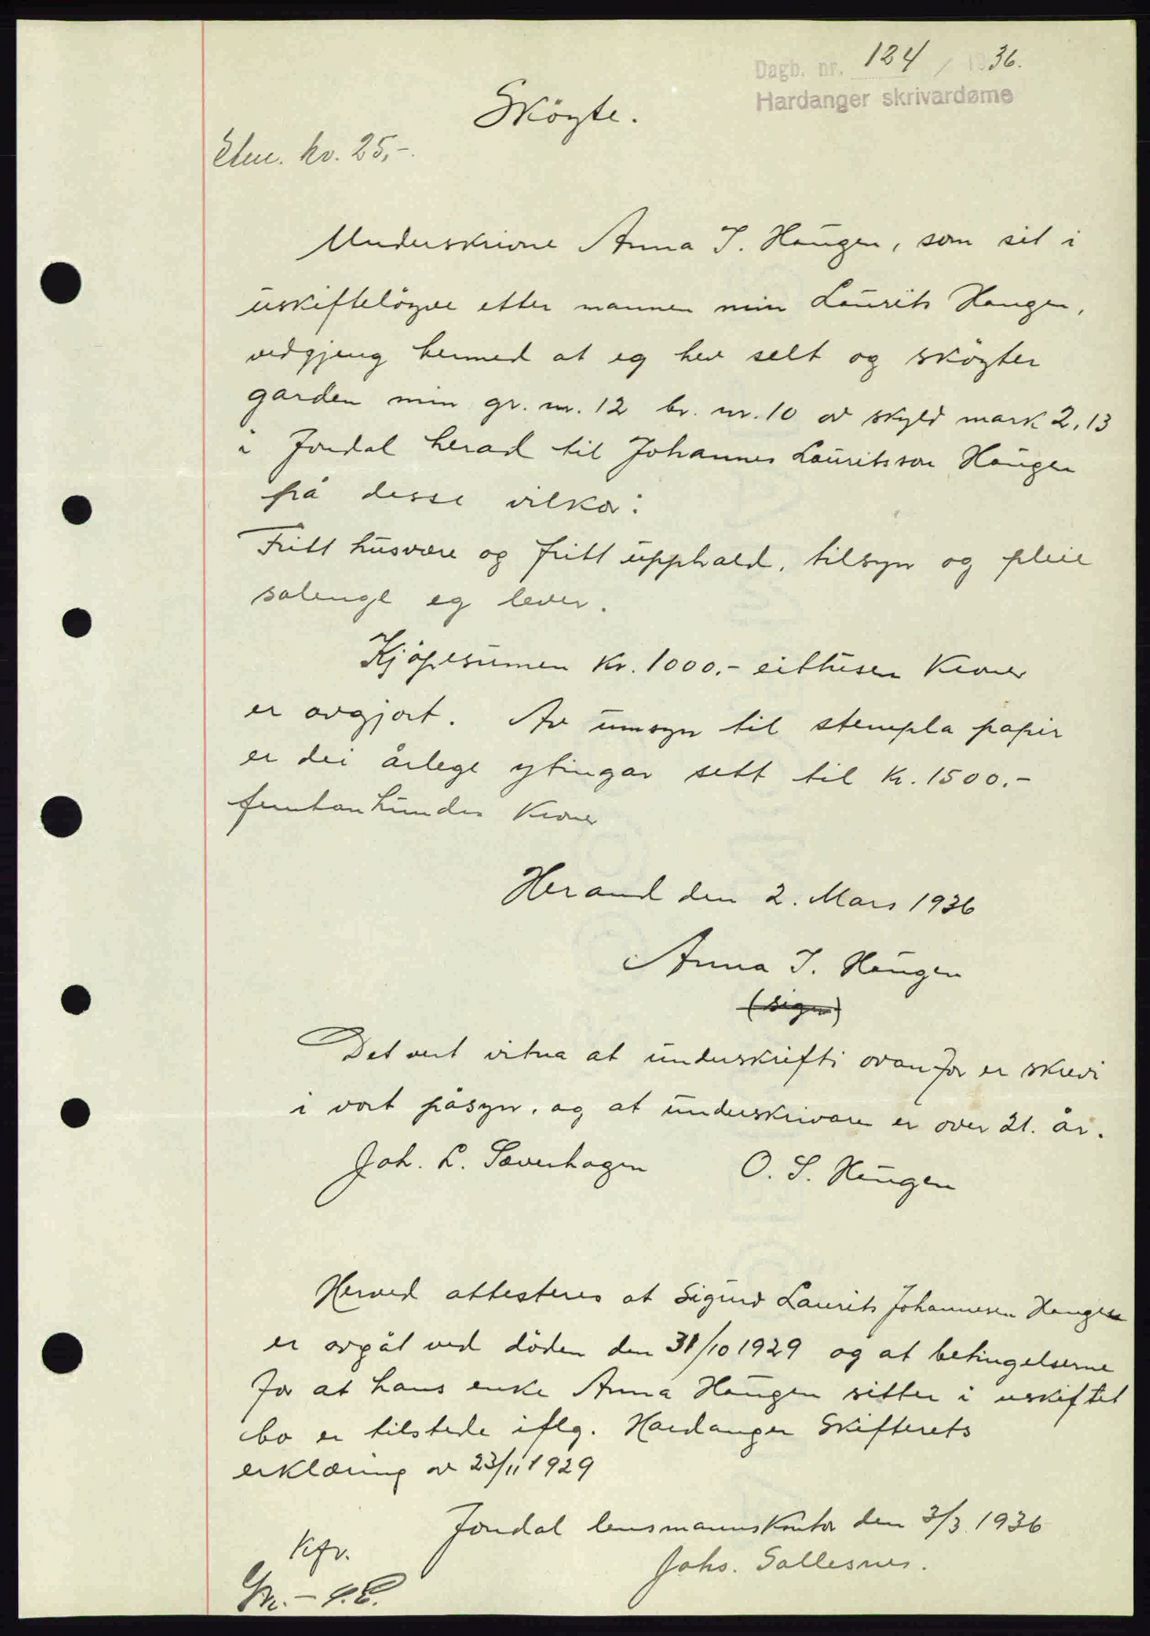 Dagb. nr. 124 / 1936.
Hardanger skrivardøme
Sköyte.
Stm. kr. 25,-.
Underskrivne Anna J. Haugen, som sit i
uskiftelöyve etter mannen min Laurits Haugen,
vedgjeng hermed at eg hev selt og sköyter
garden min gr. nr. 12 br. nr. 10 av skyld mark 2,13
i Jondal herad til Johannes Lauritsson Haugen
på desse vilkor:
Fritt husvære og fritt upphald, tilsyn og pleie
solenge eg lever.
Kjöpesumen Kr. 1000.- eittusen Kroner
er avgjort. Av umsyn til stempla papir
er dei årlege ytingar sett til Kr. 1500.-
femtanhundre Kroner
Herand den 2. Mars 1936
Anna J. Haugen
(sign)
Det vert vitna at underskrifti ovanfor er skrevi
i vort påsyn, og at underskrivaren er over 21. år.
Joh. L. Saverhagen O. S. Haugen
Herved attesteres at Sigurd Laurits Johannesen Haugen
er avgåt ved döden den 31/10 1929 og at betingelserne
for at hans enke Anna Haugen sitter i uskiftet
bo er tilstede iflg. Hardanger Skifterets
erklæring av 23/11 1929
Jondal lensmannskontor den 3/3 1936
Johs. Sollesnes.
Kfr.